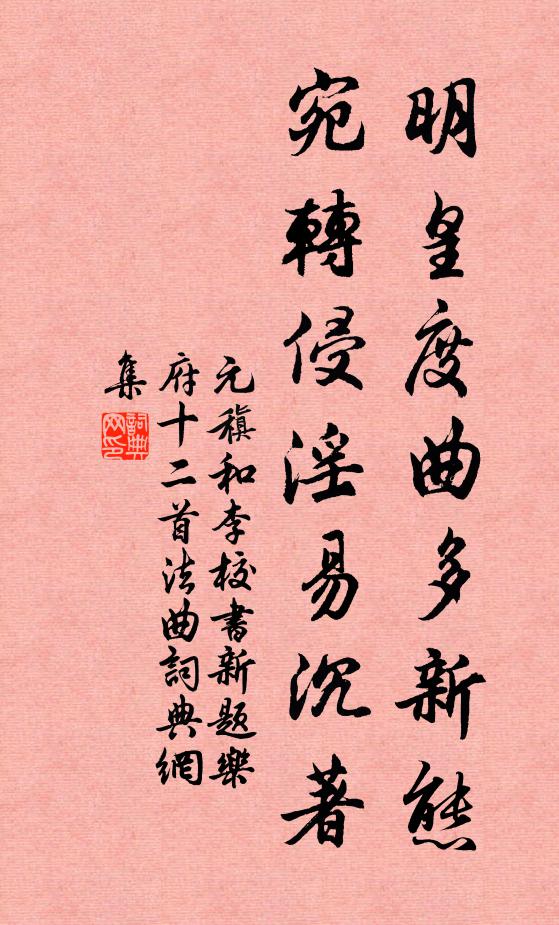 明皇度曲多新態
宛轉侵淫易沉著
元稹和李校書新題樂
府十二首法曲詞典網
集
詞典網印